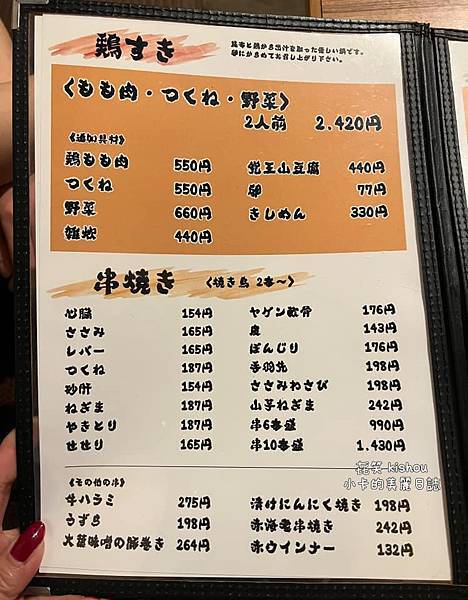 鶏すき
昆布と鶏から出汁を取った優しい鍋です。
卵にからめてお召し上がり下さい。
〈もも肉・つくね・野菜〉
2人前 2.420円
《追加具材》
鶏もも肉 550円
つくね 550円
野菜 660円
雑炊 440円
覚王山豆腐 440円
卵 77円
きしめん 330円
串焼き 〈焼き鳥 2本〜〉
心臓 154円
ささみ 165円
レバー 165円
つくね 187円
砂肝 154円
ねぎま 187円
やきとり 187円
せせり 165円
ヤゲン軟骨 176円
皮 143円
ぼんじり 176円
手羽先 198円
ささみわさび 198円
山芋ねぎま 242円
串6番盛 990円
串10番盛 1,430円
花笑-kishou
小卡的美麗日誌
《その他の串》
牛ハラミ 275円
うずら 198円
大葉味噌の豚巻き 264円
漬けにんにく焼き 198円
赤海老串焼き 242円
赤ウインナー 132円